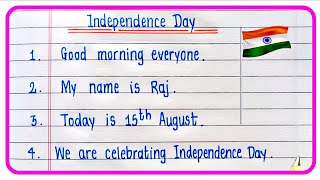 Independence Day
1. Good morning everyone.
2. My name is Raj.
3. Today is 15th August.
4. We are celebrating Independence Day.